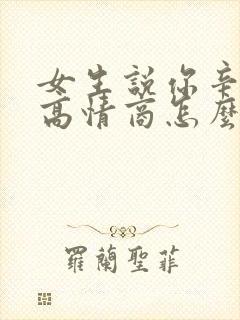 女生說你辛
高情商怎麼
羅蘭聖菲